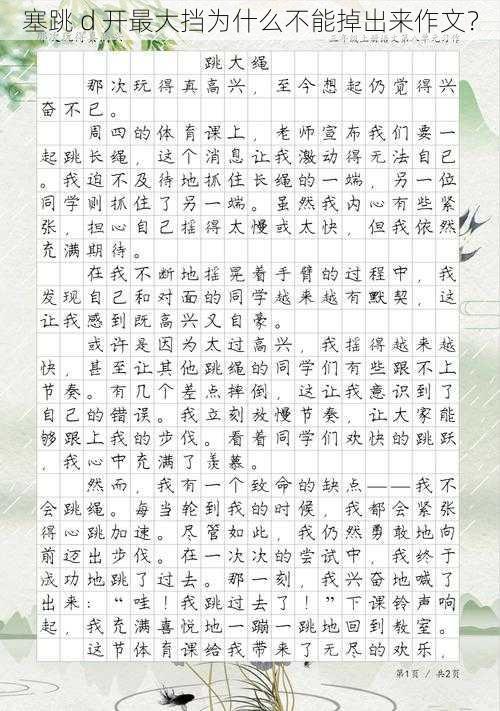 塞跳 d 开最大挡为什么不能掉出来作文?
三年级上册语文第八单元习作
跳大绳
那次玩得真高兴，至今想起仍觉得兴
奋不已。
周四的体育课上，老师宣布我们要一
起跳长绳，这个消息让我激动得无法自己
。我迫不及待地抓住长绳的一端，另一位
同学则抓住了另一端。虽然我内心有些紧
张，担心自己摇得太慢或太快，但我依然
充满期待。
在我不断地摇晃着手臂的过程中，我
发现自己和对面的同学越来越有默契，这
让我感到既高兴又自豪。
或许是因为太过高兴，我摇得越来越
快，甚至让其他跳绳的同学们有些跟不上
节奏。有几个差点摔倒，这让我意识到了
自己的错误。我立刻放慢节奏，让大家能
够跟上我的步伐。看着同学们欢快的跳跃
，我心中充满了羡慕。
然而，我有一个致命的缺点——我不
会跳绳。每当轮到我的时候，我都会紧张
得心跳加速。尽管如此，我仍然勇敢地向
前迈出步伐。在一次次的尝试中，我终于
成功地跳了过去。那一刻，我兴奋地喊了
出来：“哇！我跳过去了！”下课铃声响
起，我充满喜悦地一蹦一跳地回到教室。
这节体育课给我带来了无尽的欢乐，
第1页 / 共2页